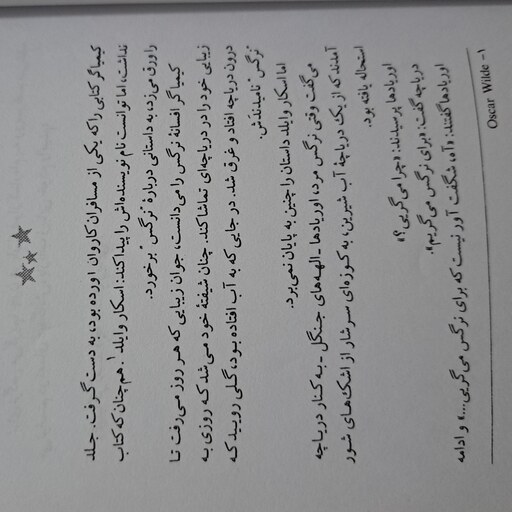 کیمیاگر کتابی را که یکی از مسافران کاروان آورده بود، به دست گرفت. جلد
نداشت، اما توانست نام نویسنده‌اش را پیدا کند: اسکار وایلد۱. هم‌چنان که کتاب
را ورق می‌زد، به داستانی دربارهٔ نرگس برخورد.
کیمیاگر افسانهٔ نرگس را می‌دانست، جوان زیبایی که هر روز می‌رفت تا
زیبایی خود را در دریاچه‌ای تماشا کند. چنان شیفتهٔ خود می‌شد که روزی به
درون دریاچه افتاد و غرق شد. در جایی که به آب افتاده بود، گلی رویید که
نرگس نامیدندش.
اما اسکار وایلد داستان را چنین به پایان نمی‌برد.
می‌گفت وقتی نرگس مرد، اوریادها ـ الهه‌های جنگل ـ به کنار دریاچه
آمدند که از یک دریاچهٔ آب شیرین، به کوزه‌ای سرشار از اشک‌های شور
استحاله یافته بود.
اوریادها پرسیدند: «چرا می‌گریی؟»
دریاچه گفت: «برای نرگس می‌گریم».
اوریادها گفتند: «آه، شگفت آور نیست که برای نرگس می‌گریی...» و ادامه
۱- Oscar Wilde